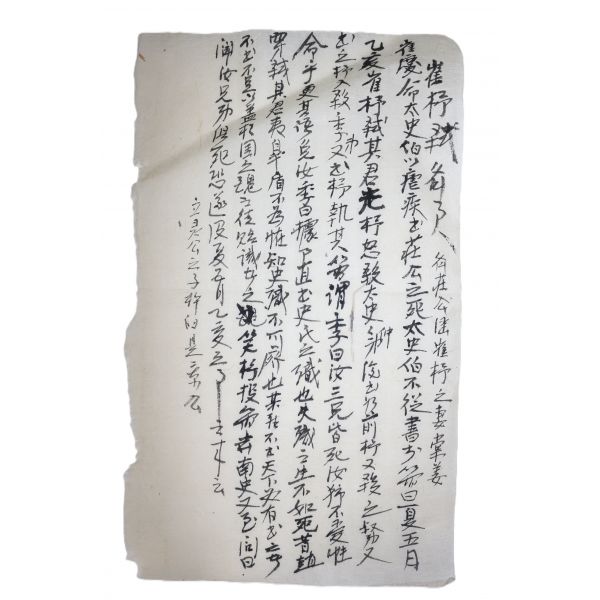 崔杼弑齐君 齐庄公淫崔杼之妻棠姜
崔庆命太史伯以瘧疾书庄公之死太史伯不從書于简曰夏五月
乙亥崔杼弑其君光杼怒殺太史 仲復書如前杼又殺之叔又
书之杼又殺季又书杼執其简謂季曰汝三兄皆死汝獨不愛性
命乎更其语免汝季曰據事直书史氏之職也失職而生不如死昔趙
穿弑其君夷皋盾不為怪知史職不可廢也某即不书天下必有书之者
不书不足以盖相国之醜工徒貽識者之 笑杼投简 南史又至 曰
闻汝兄弟俱死恐遂没夏五月乙亥之事
立灵公之子杵臼是景公